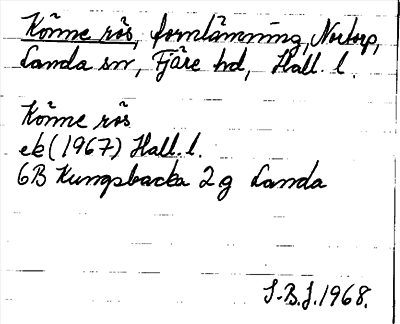 Könne rös, fornlämning, Nortorp,
Landa sn, Fjäre hd, Hall. l.
Könne rös
ek (1967) Hall. l.
6B Kungsbacka 2 g Landa
S.B.J. 1968.